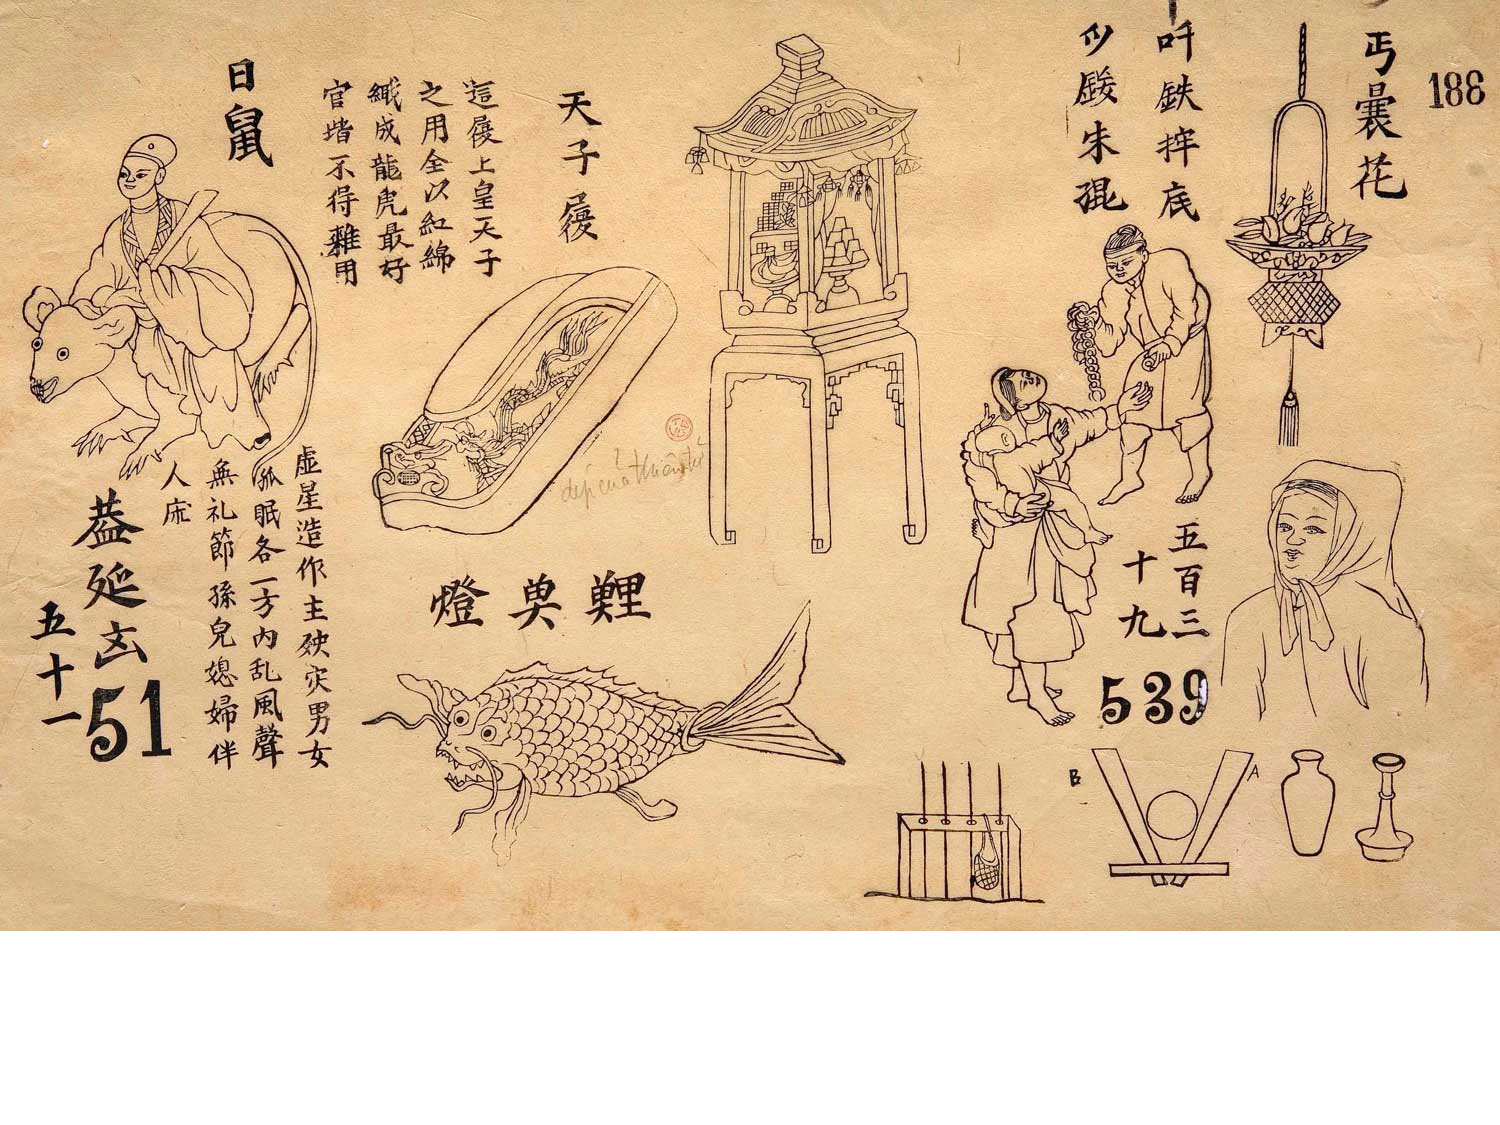 188
丐曩花
吀鉄捽底
朱
五百三
十九
539
天子屐
這屐上皇天子
之用全以紅綿
織成龍虎最好
官堦不得雜用
dép của thiên tử
燈
日鼠
虚星造作主殃灾男女
孤眠各一方内乱風聲
無礼節孫兒媳婦伴
人床
延
五十一
51
B
A